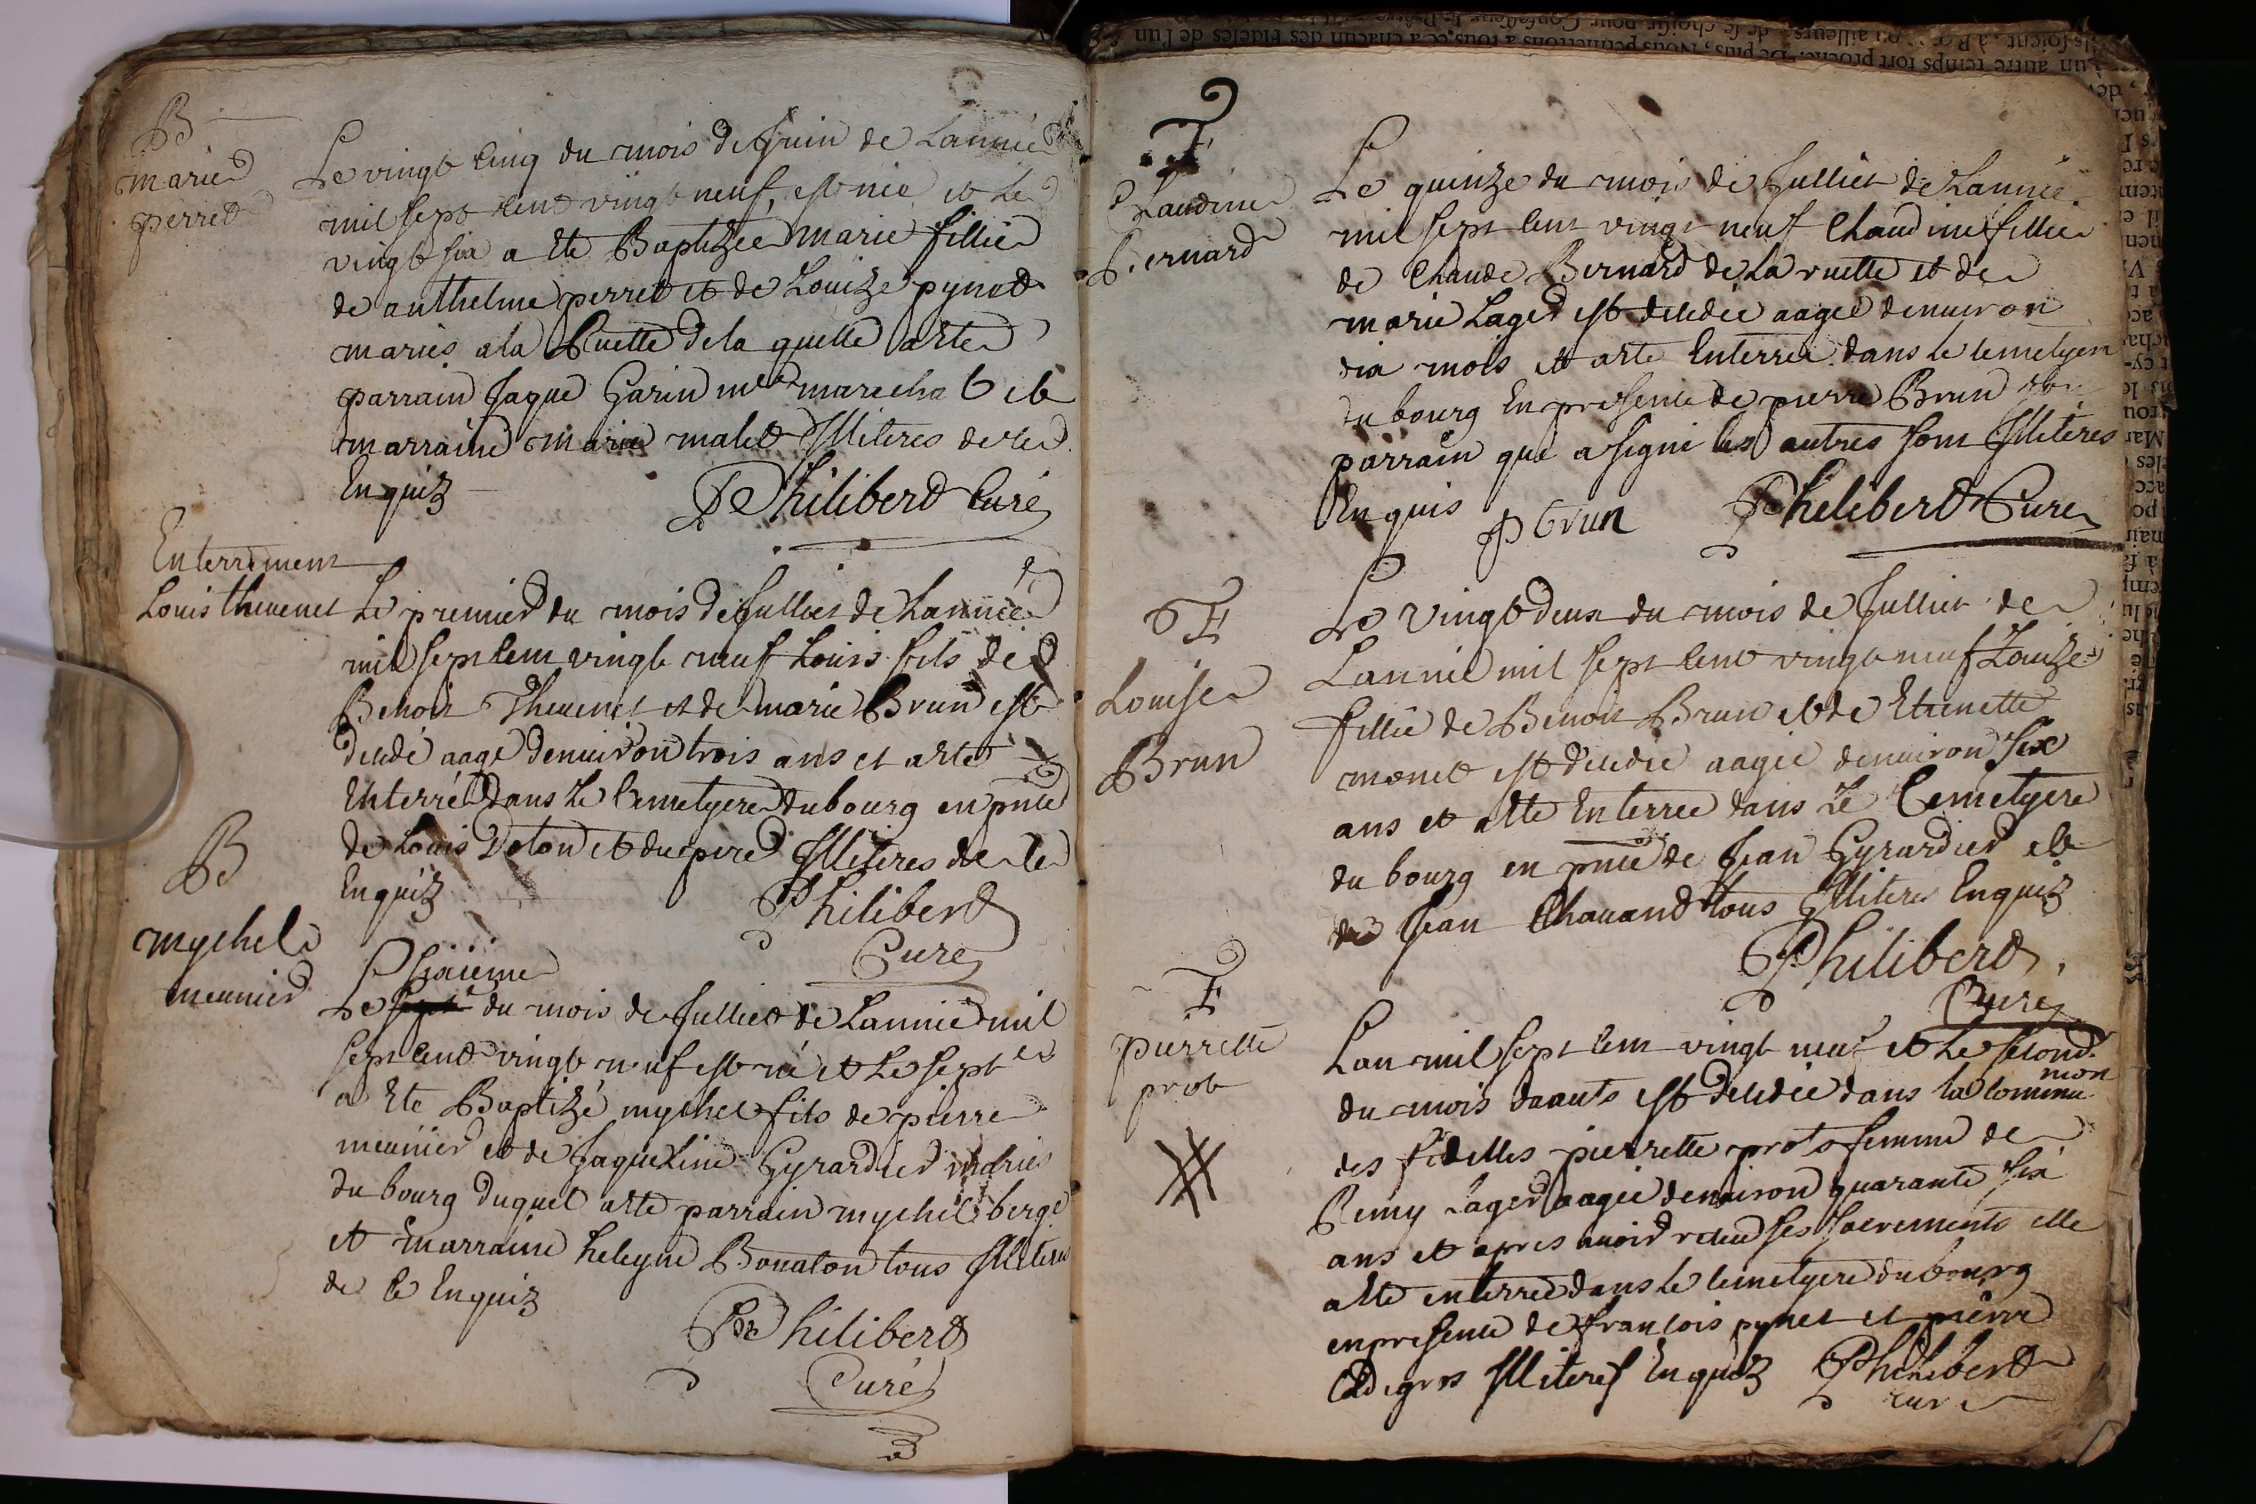 B
marie
perret
Le vingt cinq du mois de Juin de Lannée
mil sept cent vingt neuf, est née et le
vingt six a ete Baptizée marie fillie
de anthelme perret et de Louize pynet
mariés a la Ruette de la quelle a ete
parrain Jaque Garin me marechal et
marraine marie malet Illiteres de ce
Enquiz
Philibert Curé
Enterrement
Louis thevenet
Le premier du mois de Julliet de Lannée
mil sept cent vingt neuf Louis fils de
Benoit Thevenet et de marie Brun est
decedé aagé denviron trois ans et a ete
Enterré dans le Cemetyere du bourg en pnce
de Louis Deton et du pere Illiteres de ce
Enquiz
Philibert
Curé
B
mychel
meunier
sixieme
Le sept du mois de Julliet de Lannée mil
sept cent vingt neuf est né et Le sept
a Ete Baptizé mychel fils de pierre
meunier et de Jaqueline Gyrardier mariés
du bourg duquel a ete parrain mychel berge
et marraine heleyne Bonaton tous Illiteres
de ce Enquiz
Philibert
Curé
E
Claudine
Bernard
Le quinze du mois de Julliet de Lannée
mil sept cent vingt neuf Claudine fillie
de Claude Bernard de La ruette et de
marie Lager est decedée aagée denviron
dix mois et a ete Enterrée dans le cemetyere
du bourg En presence de pierre Brun son
parrain qui a signé les autres sont Illiteres
Enquis
P brun
Philibert Curé
E
Louise
Brun
Le vingt deux du mois de Julliet de
Lannée mil sept cent vingt neuf Louize
fillie de Benoit Brun et de Etienette
monet est decedée aagée denviron six
ans et a ete Enterrée dans Le Cemetyere
du bourg en pnce de Jean Gyrardier et
de Jean Chavand tous Illiteres Enquiz
Philibert
Curé
E
pierrette
prot
Lan mil sept cent vingt neuf et Le second
du mois daauts est decedée dans la commu
nion
des fidelles pierrette prot femme de
Remy Lager aagée denviron quarante six
ans et apres avoir receu ses sacrements elle
a ete enterrée dans le cemetyere du bourg
en presence de francois pynet et pierre
Illiteres Enquiz
Philibert
curé